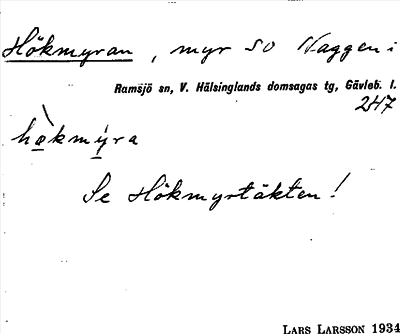 Hökmyran, myr SO Naggen i
Ramsjö sn, V. Hälsinglands domsagas tg, Gävleb. l.
2H7
hökmýra
Se Hökmyrtäkten!
LARS LARSSON 1934